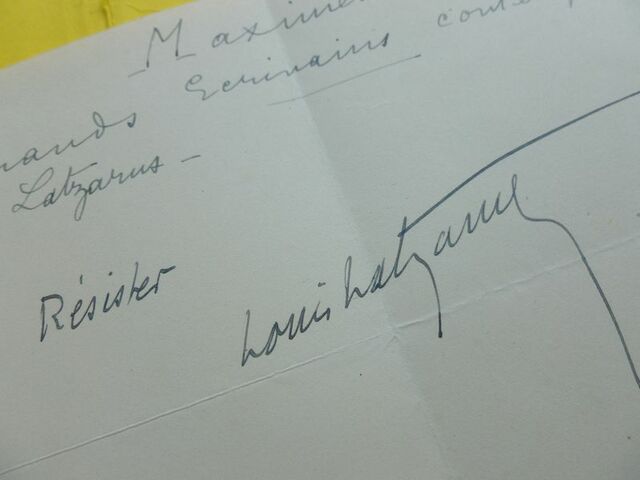 Maxime
ands Ecrivains conte
Latzarus –
Résister
Louis Latzarus